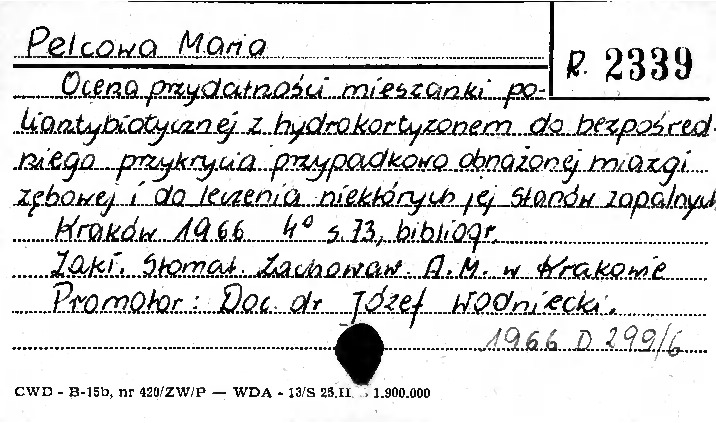 Pelcowa Maria
R. 2339
Ocena przydatności mieszanki po-
liantybiotycznej z hydrokortyzonem do bezpośred-
niego przykrycia przypadkowo obnażonej miazgi
zębowej i do leczenia niektórych jej stanów zapalnych
Kraków 1966 4° s. 73, bibliogr.
Zakł. Stomat. Zachowaw. A.M. w Krakowie
Promotor: Doc. dr Józef Wodniecki.
1966 D 299/6
CWD - B-15b, nr 420/ZW/P — WDA - 13/S 25.II. 1.900.000